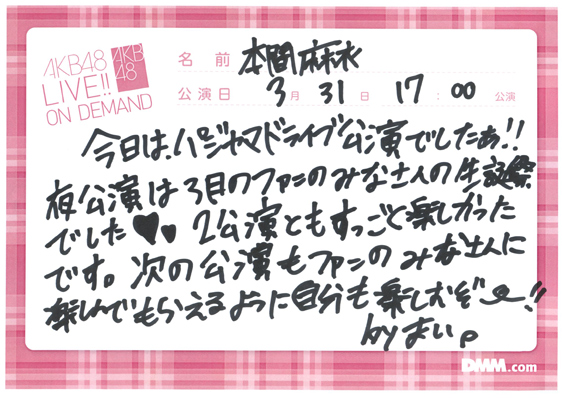 AKB48
LIVE!!
ON DEMAND
AKB
48
名前 本間麻衣
公演日 3月31日 17:00公演
今日は、パジャマドライブ公演でしたぁ!!
夜公演は3月のファンのみなさんの生誕祭
でした♥♥ 2公演ともすっごく楽しかった
です。次の公演もファンのみなさんに
楽しんでもらえるように自分も楽しむぞー!!
byまい。
DMM.com